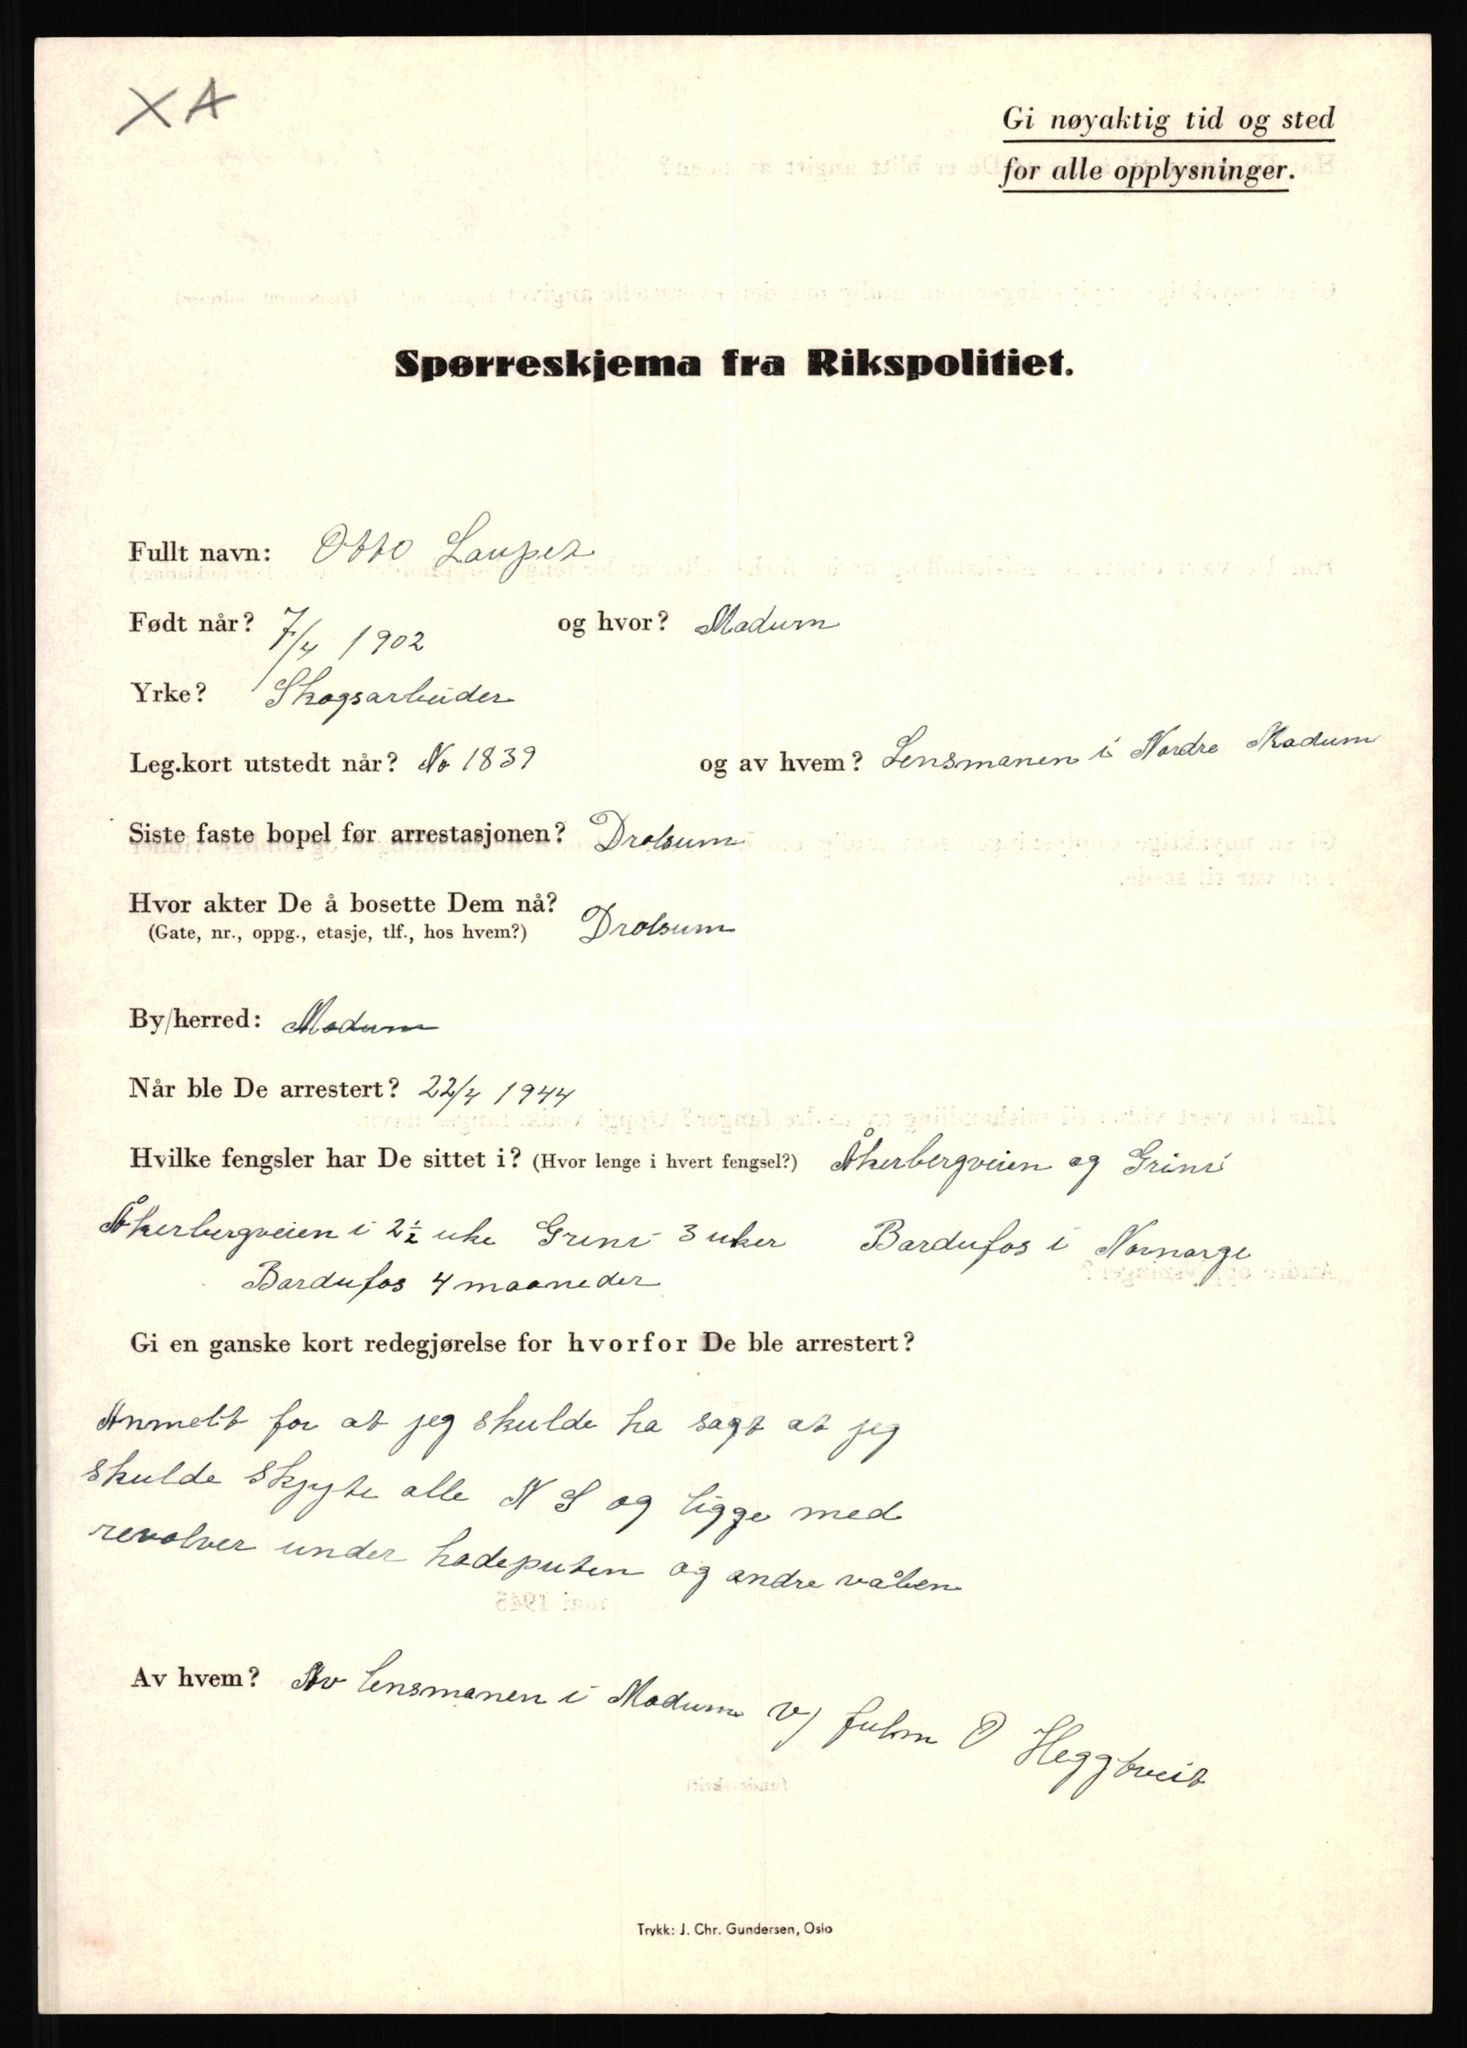 XA
Gi nøyaktig tid og sted
for alle opplysninger.
Spørreskjema fra Rikspolitiet.
Fullt navn: Otto Laupet
Født når? 7/4 1902 og hvor? Modum
Yrke? Skogsarbeider
Leg.kort utstedt når? No 1839 og av hvem? Lensmanen i Nordre Modum
Siste faste bopel før arrestasjonen? Drolsum
Hvor akter De å bosette Dem nå? Drolsum
(Gate, nr., oppg., etasje, tlf., hos hvem?)
By/herred: Modum
Når ble De arrestert? 22/4 1944
Hvilke fengsler har De sittet i? (Hvor lenge i hvert fengsel?) Åkerbergveien og Grini
Åkerbergveien i 2½ uke Grini 3 uker Bardufos i Nornorge
Bardufos 4 maaneder
Gi en ganske kort redegjørelse for hvorfor De ble arrestert?
Anmelt for at jeg skulde ha sagt at jeg
skulde skjyte alle N S og ligge med
revolver under hodeputen og andre våben
Av hvem? Av lensmanen i Modum v/ fulm O Heggtveit
Trykk: J. Chr. Gundersen, Oslo